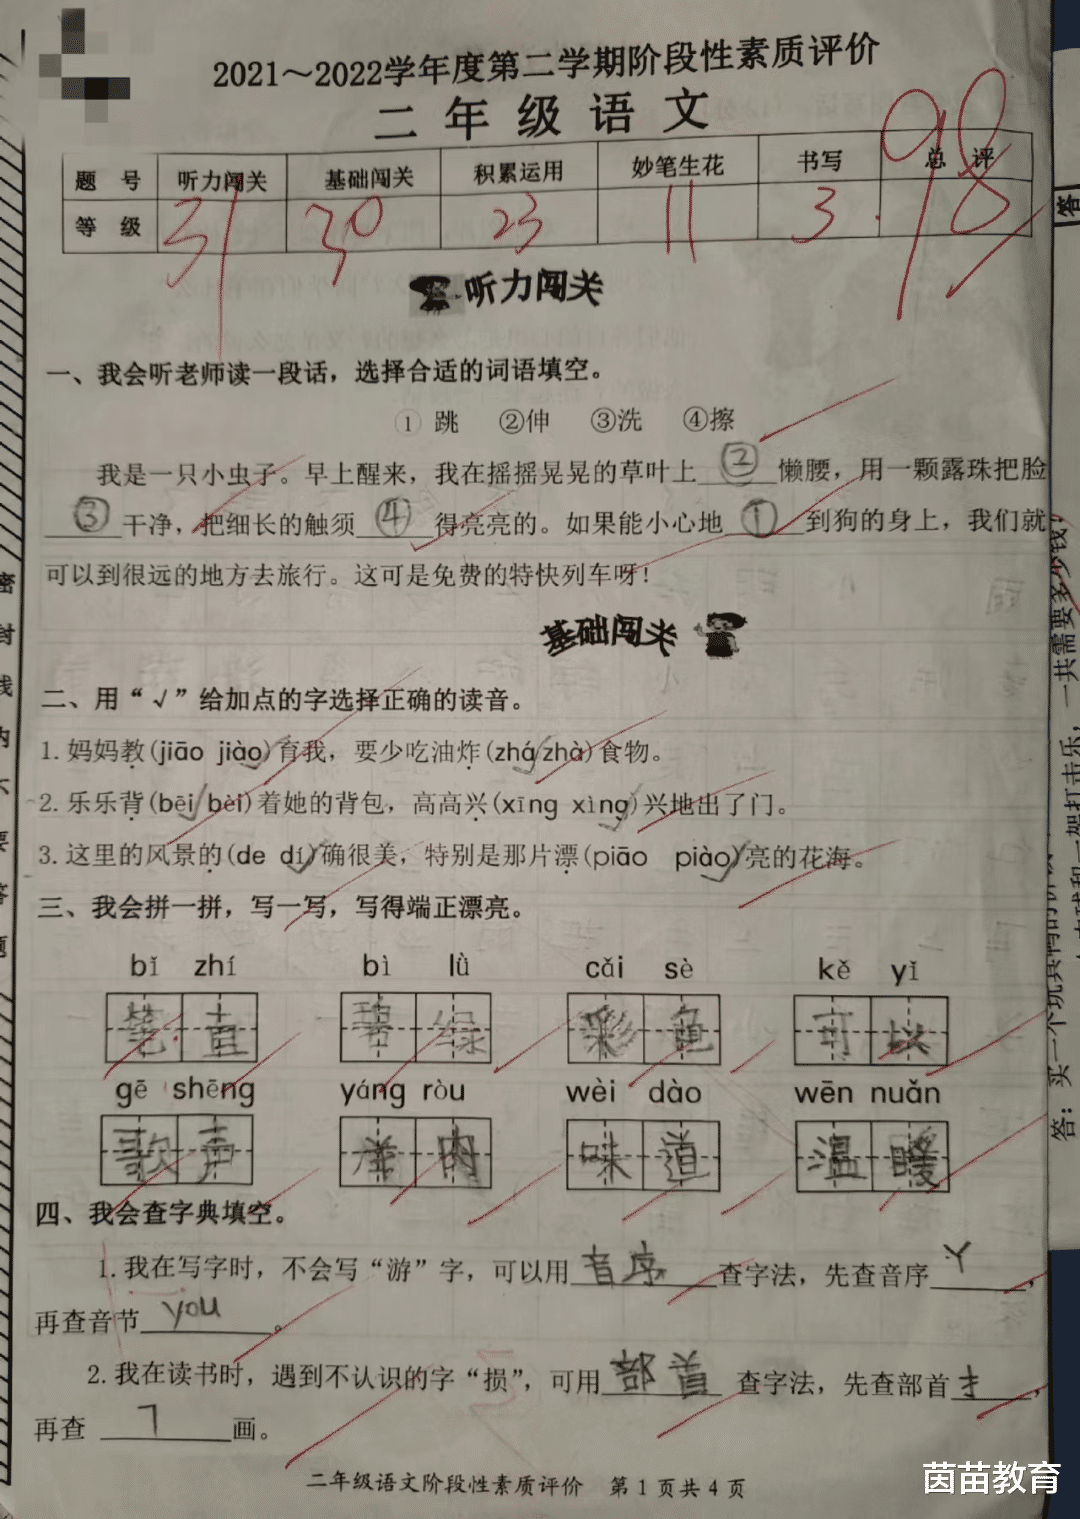 2021～2022学年度第二学期阶段性素质评价
二年级语文
题 号 听力闯关 基础闯关 积累运用 妙笔生花 书写 总 评
等 级 31 30 23 11 3 98
98
答
听力闯关
一、我会听老师读一段话，选择合适的词语填空。
① 跳 ②伸 ③洗 ④擦
我是一只小虫子。早上醒来，我在摇摇晃晃的草叶上②懒腰，用一颗露珠把脸
③干净，把细长的触须④得亮亮的。如果能小心地①到狗的身上，我们就
可以到很远的地方去旅行。这可是免费的特快列车呀！
基础闯关
二、用“√”给加点的字选择正确的读音。
1.妈妈教(jiāo jiào✓)育我，要少吃油炸(zhá✓zhà)食物。
2.乐乐背(bēi✓bèi)着她的背包，高高兴(xīng xìng✓)兴地出了门。
3.这里的风景的(de dí✓)确很美，特别是那片漂(piāo piào✓)亮的花海。
三、我会拼一拼，写一写，写得端正漂亮。
bǐ zhí bì lǜ cǎi sè kě yǐ
笔直 碧绿 彩色 可以
gē shēng yáng ròu wèi dào wēn nuǎn
歌声 羊肉 味道 温暖
四、我会查字典填空。
1.我在写字时，不会写“游”字，可以用音序查字法，先查音序Y，
再查音节you。
2.我在读书时，遇到不认识的字“损”，可用部首查字法，先查部首扌，
再查 7 画。
二年级语文阶段性素质评价 第1页共4页
密封线内不要答题
一共需要多少钱？
答：买一个玩具
茵苗教育